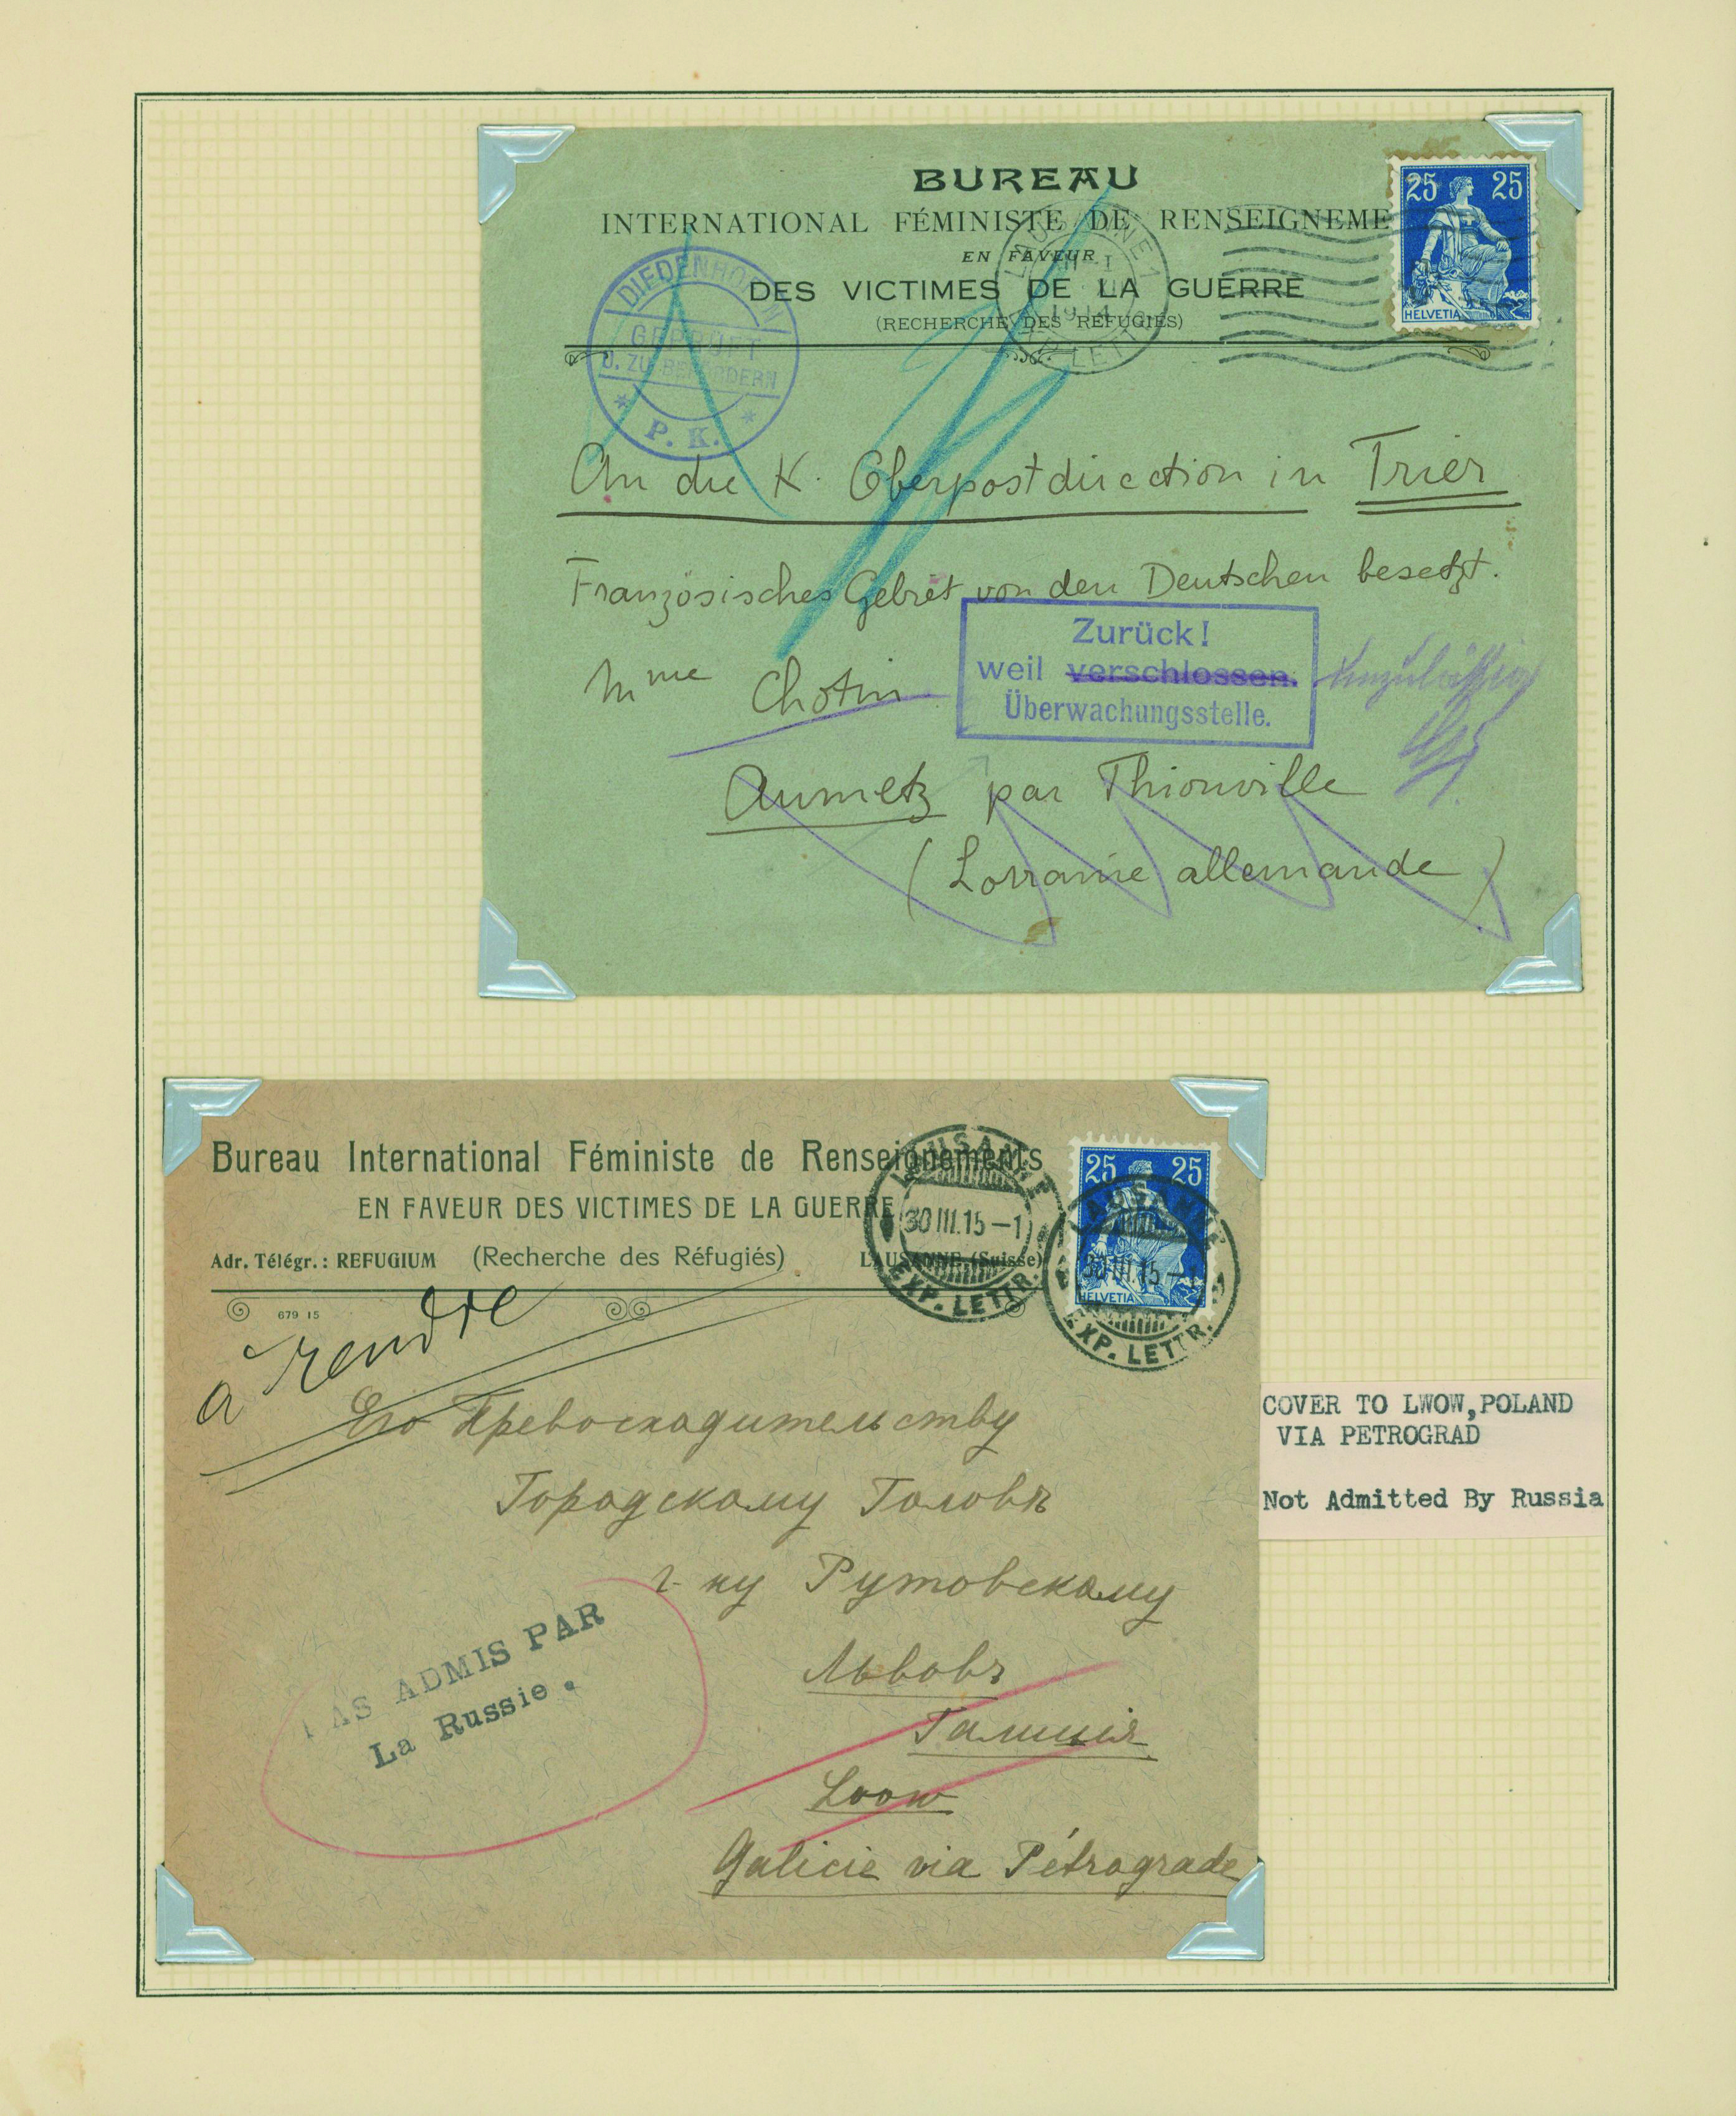 BUREAU
INTERNATIONAL FÉMINISTE DE RENSEIGNEME
EN FAVEUR
DES VICTIMES DE LA GUERRE
(RECHERCHE DES RÉFUGIÉS)
25 25
HELVETIA
LAUSANNE 1
1914
EXP. LETTR.
DIEDENHOFEN
GEPRÜFT
U. ZU BEFÖRDERN
* P. K. *
An die K. Oberpostdirection in Trier
Französisches Gebiet von den Deutschen besetzt.
Mme Chotin
Zurück!
weil verschlossen. unzulässig
Überwachungsstelle.
Aumetz par Thionville
(Lorraine allemande)
Bureau International Féministe de Renseignements
EN FAVEUR DES VICTIMES DE LA GUERRE
Adr. Télégr.: REFUGIUM (Recherche des Réfugiés) LAUSANNE (Suisse)
679 15
LAUSANNE
30 III.15-1
EXP. LETTR.
25 25
HELVETIA
LAUSANNE
30 III.15-1
EXP. LETTR.
à rendre
Его Превосходительству
Городскому Головѣ
г-ну Рутовскому
Львовъ
Галиція
Lwow
Galicie via Pétrograde
PAS ADMIS PAR
La Russie.
COVER TO LWOW, POLAND
VIA PETROGRAD
Not Admitted By Russia